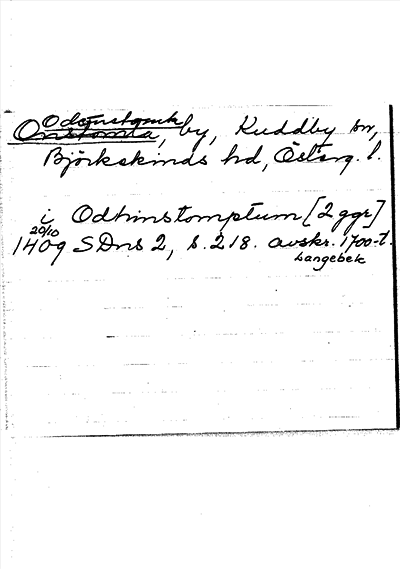 Odenstomk
Onstomta, by, Kuddby sn,
Björkekinds hd, Österg. l.
i Odhinstomptum [2 ggr]
20/10
1409 SDns 2, s. 218. avskr. 1700-t.
Langebek